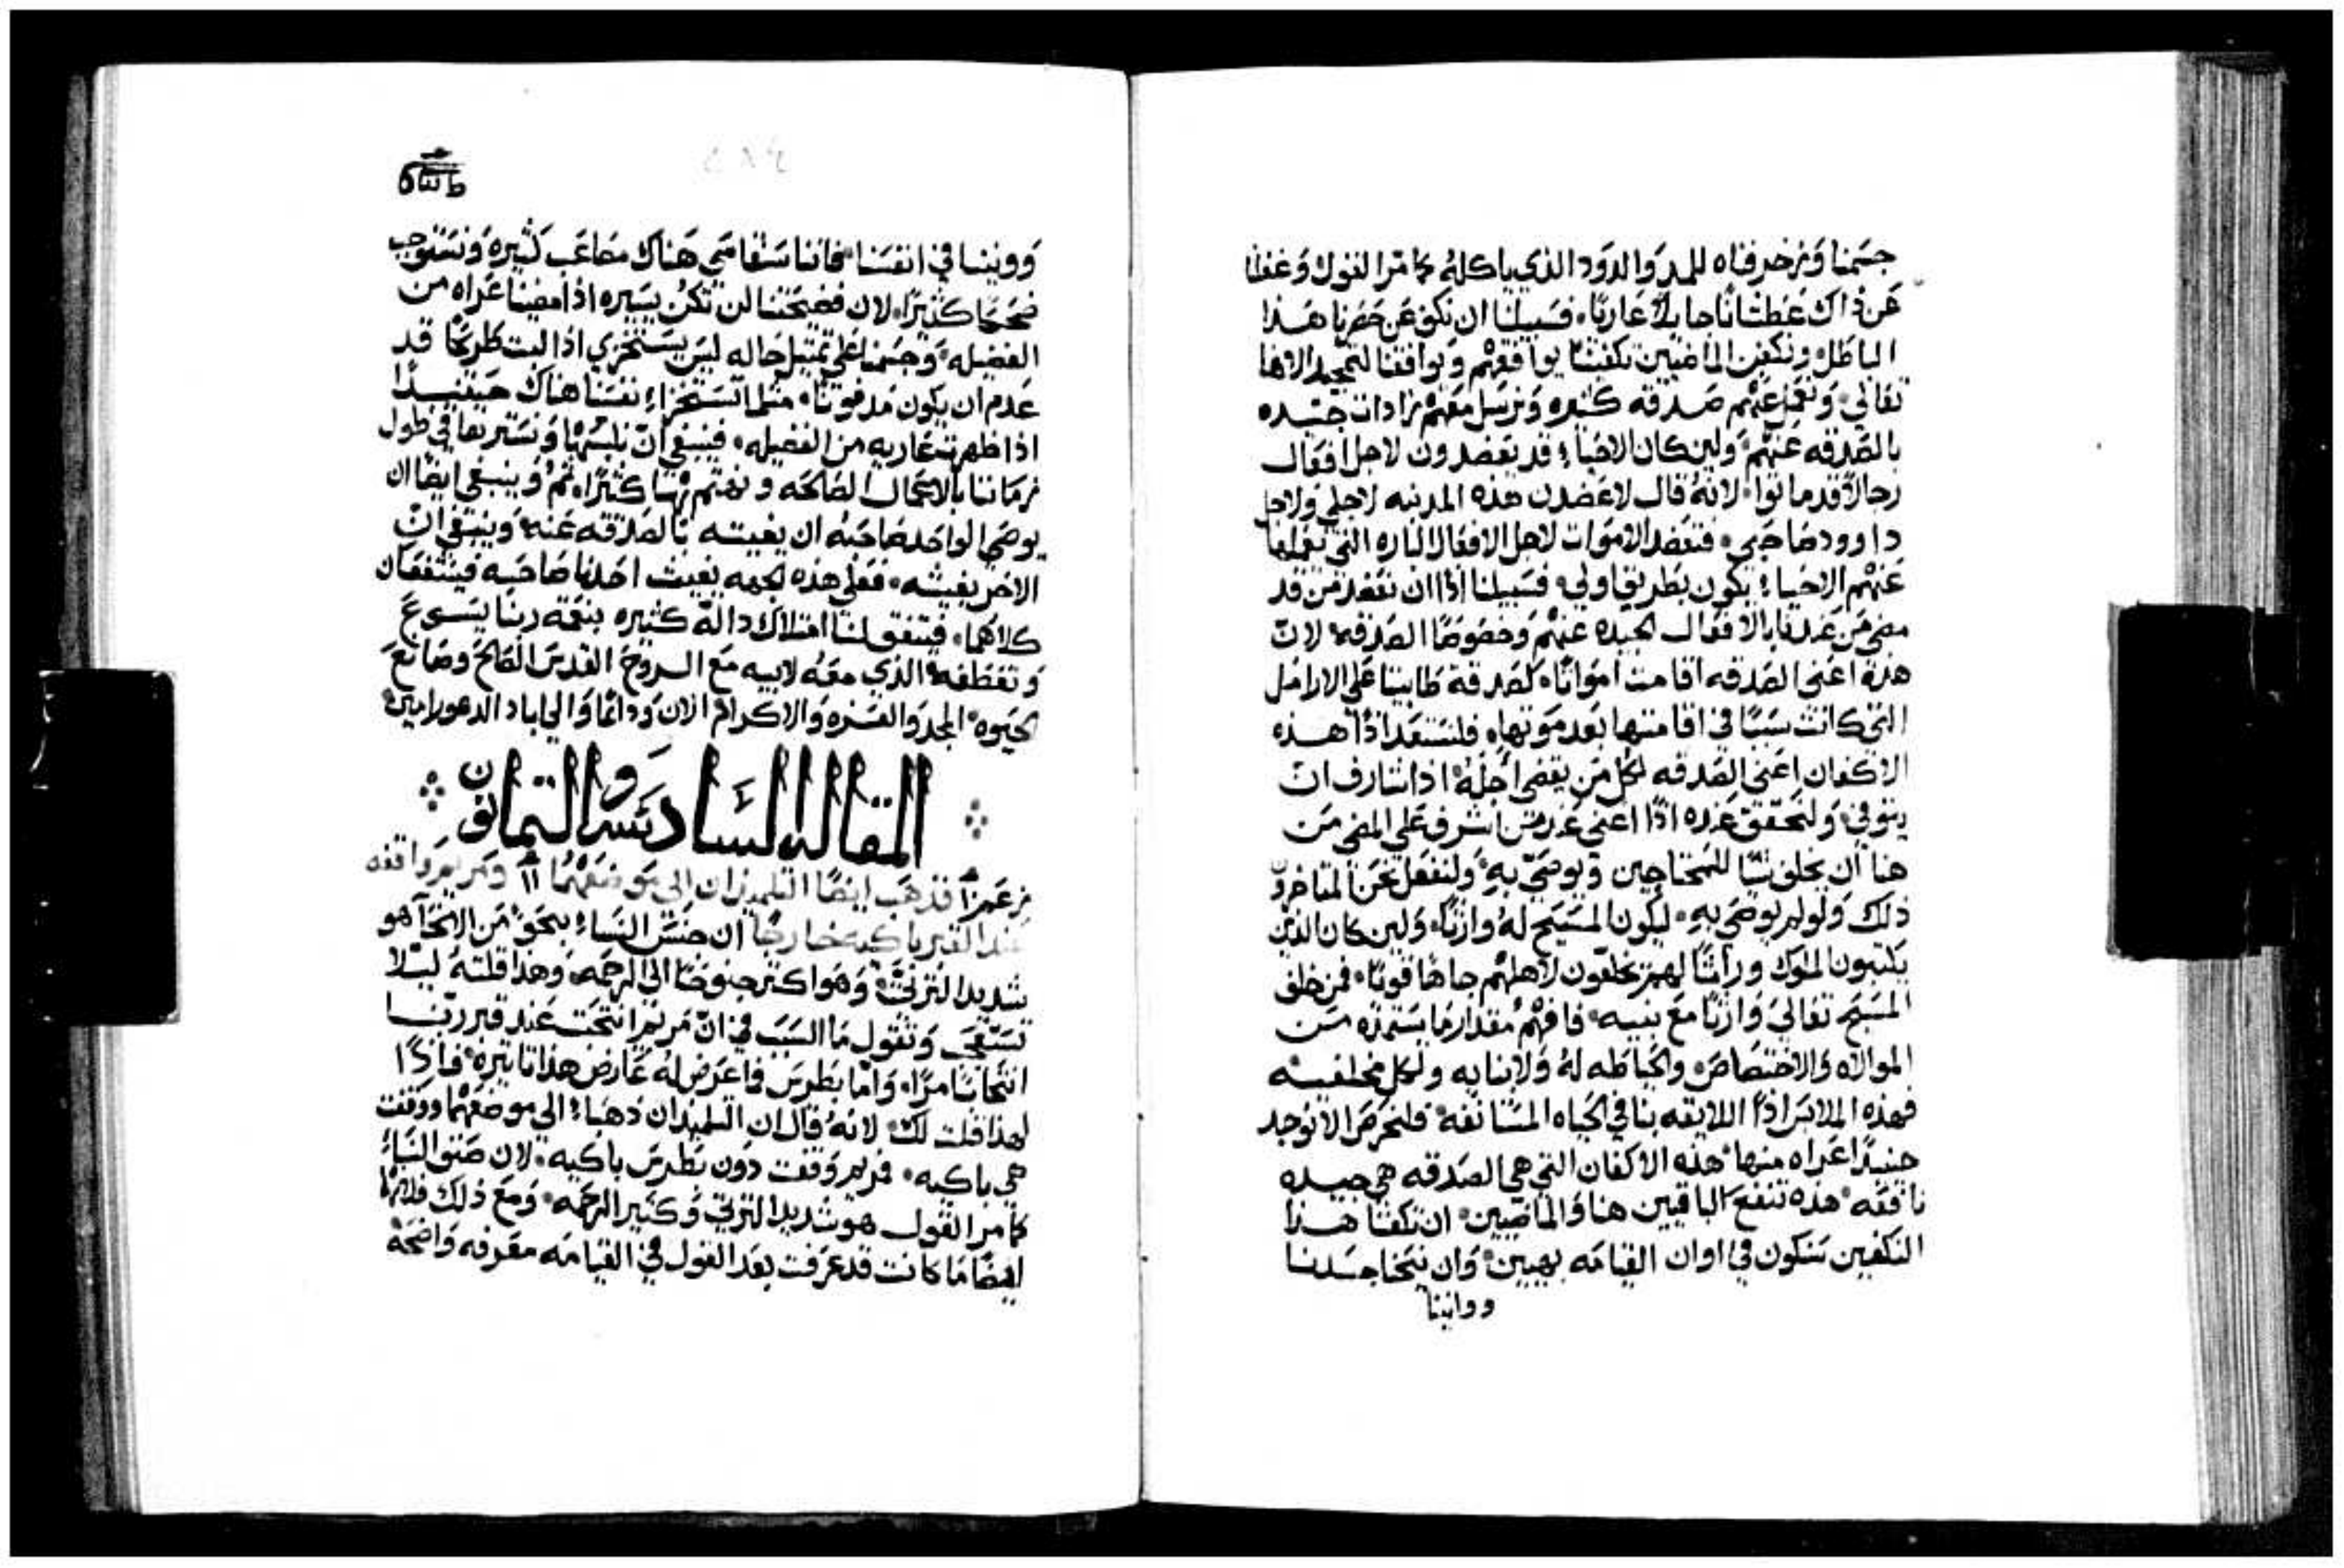 جسمنا ونزخرفناه للمد والدود الذي ياكله كما مر القول وغفلنا
عن ذاك عطشانا جايلا عاريا، فسبيلنا ان نكف عن حرصنا هذا
الباطل ونكفن الماضيين تكفينا يوافقهم ويوافقنا لتمجيد الاهنا
تعالى، ونعمل عنهم صدقه كثيره ونرسل معهم زادات جيده
بالصدقه عنهم، ولين كان الاحياء قد يعضدون لاجل افعال
رجالا قد ماتوا، لانه قال لاعضدن هذه المدينه لاجلي ولاجل
داوود صاحبي، فتعضد الاموات لاجل الافعال الباره التي تعملها
عنهم الاحياء يكون بطريق اولى، فسبيلنا اذا ان نعضد من قد
مضى من عندنا بالافعال الجيده عنهم وخصوصا الصدقه، لان
هذه اعني الصدقه اقامت امواتا، كصدقة طابيتا على الارامل
التي كانت سببا في اقامتها بعد موتها، فلنستعد اذا هذه
الاكفان اعني الصدقه لكل من يقضي اجله، اذا شارف ان
يتوفى، ولنحقق عنده اذا اعني عند من اشرف على المضي من
هنا ان يخلف شيا للمحتاجين ويوصي به، ولنفعل نحن المتاخرون
ذلك ولو لم يوصي به، ليكون المسيح له وارثا، ولين كان الذين
يكتبون الملوك وراثا لهم يخلفون لاهلهم جاها قويا، فمن خلف
المسيح تعالى وارثا مع بنيه، فافهم مقدار ما يستمده من
الموالاه والاختصاص والحياطه له ولابنايه ولكل مخلفيه
فهذه الملابس اذا اللايقه بنا في الحياه المستانفه، فلنحرص الا نوجد
حينيذ اعراه منها، هذه الاكفان التي هي الصدقه هي جيده
نافعه، هذه تنفع الباقيين هنا والماضيين، ان تكفنا هذا
التكفين سنكون في اوان القيامه بهيين، وان نتخنا جسدنا
ووانينا
ووينـنا في انفسنا، فاننا سنقاسي هناك مصاعب كثيره ونستوجب
ضحكا كثيرا، لان فضيحتنا لن تكن يسيره اذا مضينا عراه من
الفضيله، وجسمنا على تمثيل حاله ليس يستخزي اذا لبث طريحا قد
عدم ان يكون مدفونا، مثلما تستخزا نفسنا هناك حينيذا
اذا ظهرت عاريه من الفضيله، فينبغي ان نلبسها ونسترها في طول
زماننا بالاعمال الصالحه ونهتم بها كثيرا، نعم وينبغي ايضا ان
يوصي الواحد صاحبه ان يغيثه بالصدقه عنه، وينبغي ان
الاخر يغيثه، فعلى هذه الجهه يغيث احدنا صاحبه فينتفعان
كلاهما، فيتفق لنا امتلاك داله كثيره بنعمه ربنا يسوع
وتعطفه، الذي معه لابيه مع الروح القدس الصالح وصانع
الحيوه، المجد والعزه والاكرام الان ودايما والى اباد الدهور امين،
المقاله السادسه والثمانون
قد ذهب ايضا التلميذان الى موضعهما ومريم واقفه
عند القبر باكيه خارجا ان جنس النساء بنحو من الانحا هو
شديد الترثي، وهو اكثر جنوحا الى الرحمه، وهذا قلته ليلا
تستعجب وتقول ما السبب في ان مريم انتحبت عند قبر ربنا
انتحابا مرا، واما بطرس فاعرض له عارض هذا تاثيره، فاذا
لهذا قلت لك، لانه قال ان التلميذان ذهباء الى موضعهما ووقفت
هي باكيه، فمريم وقفت دون بطرس باكيه، لان صنف النساء
كما مر القول هو شديد الترثي وكثير الرحمه، ومع ذلك فلانها
ايضا ما كانت قد عرفت بعد القول في القيامه معرفه واضحه